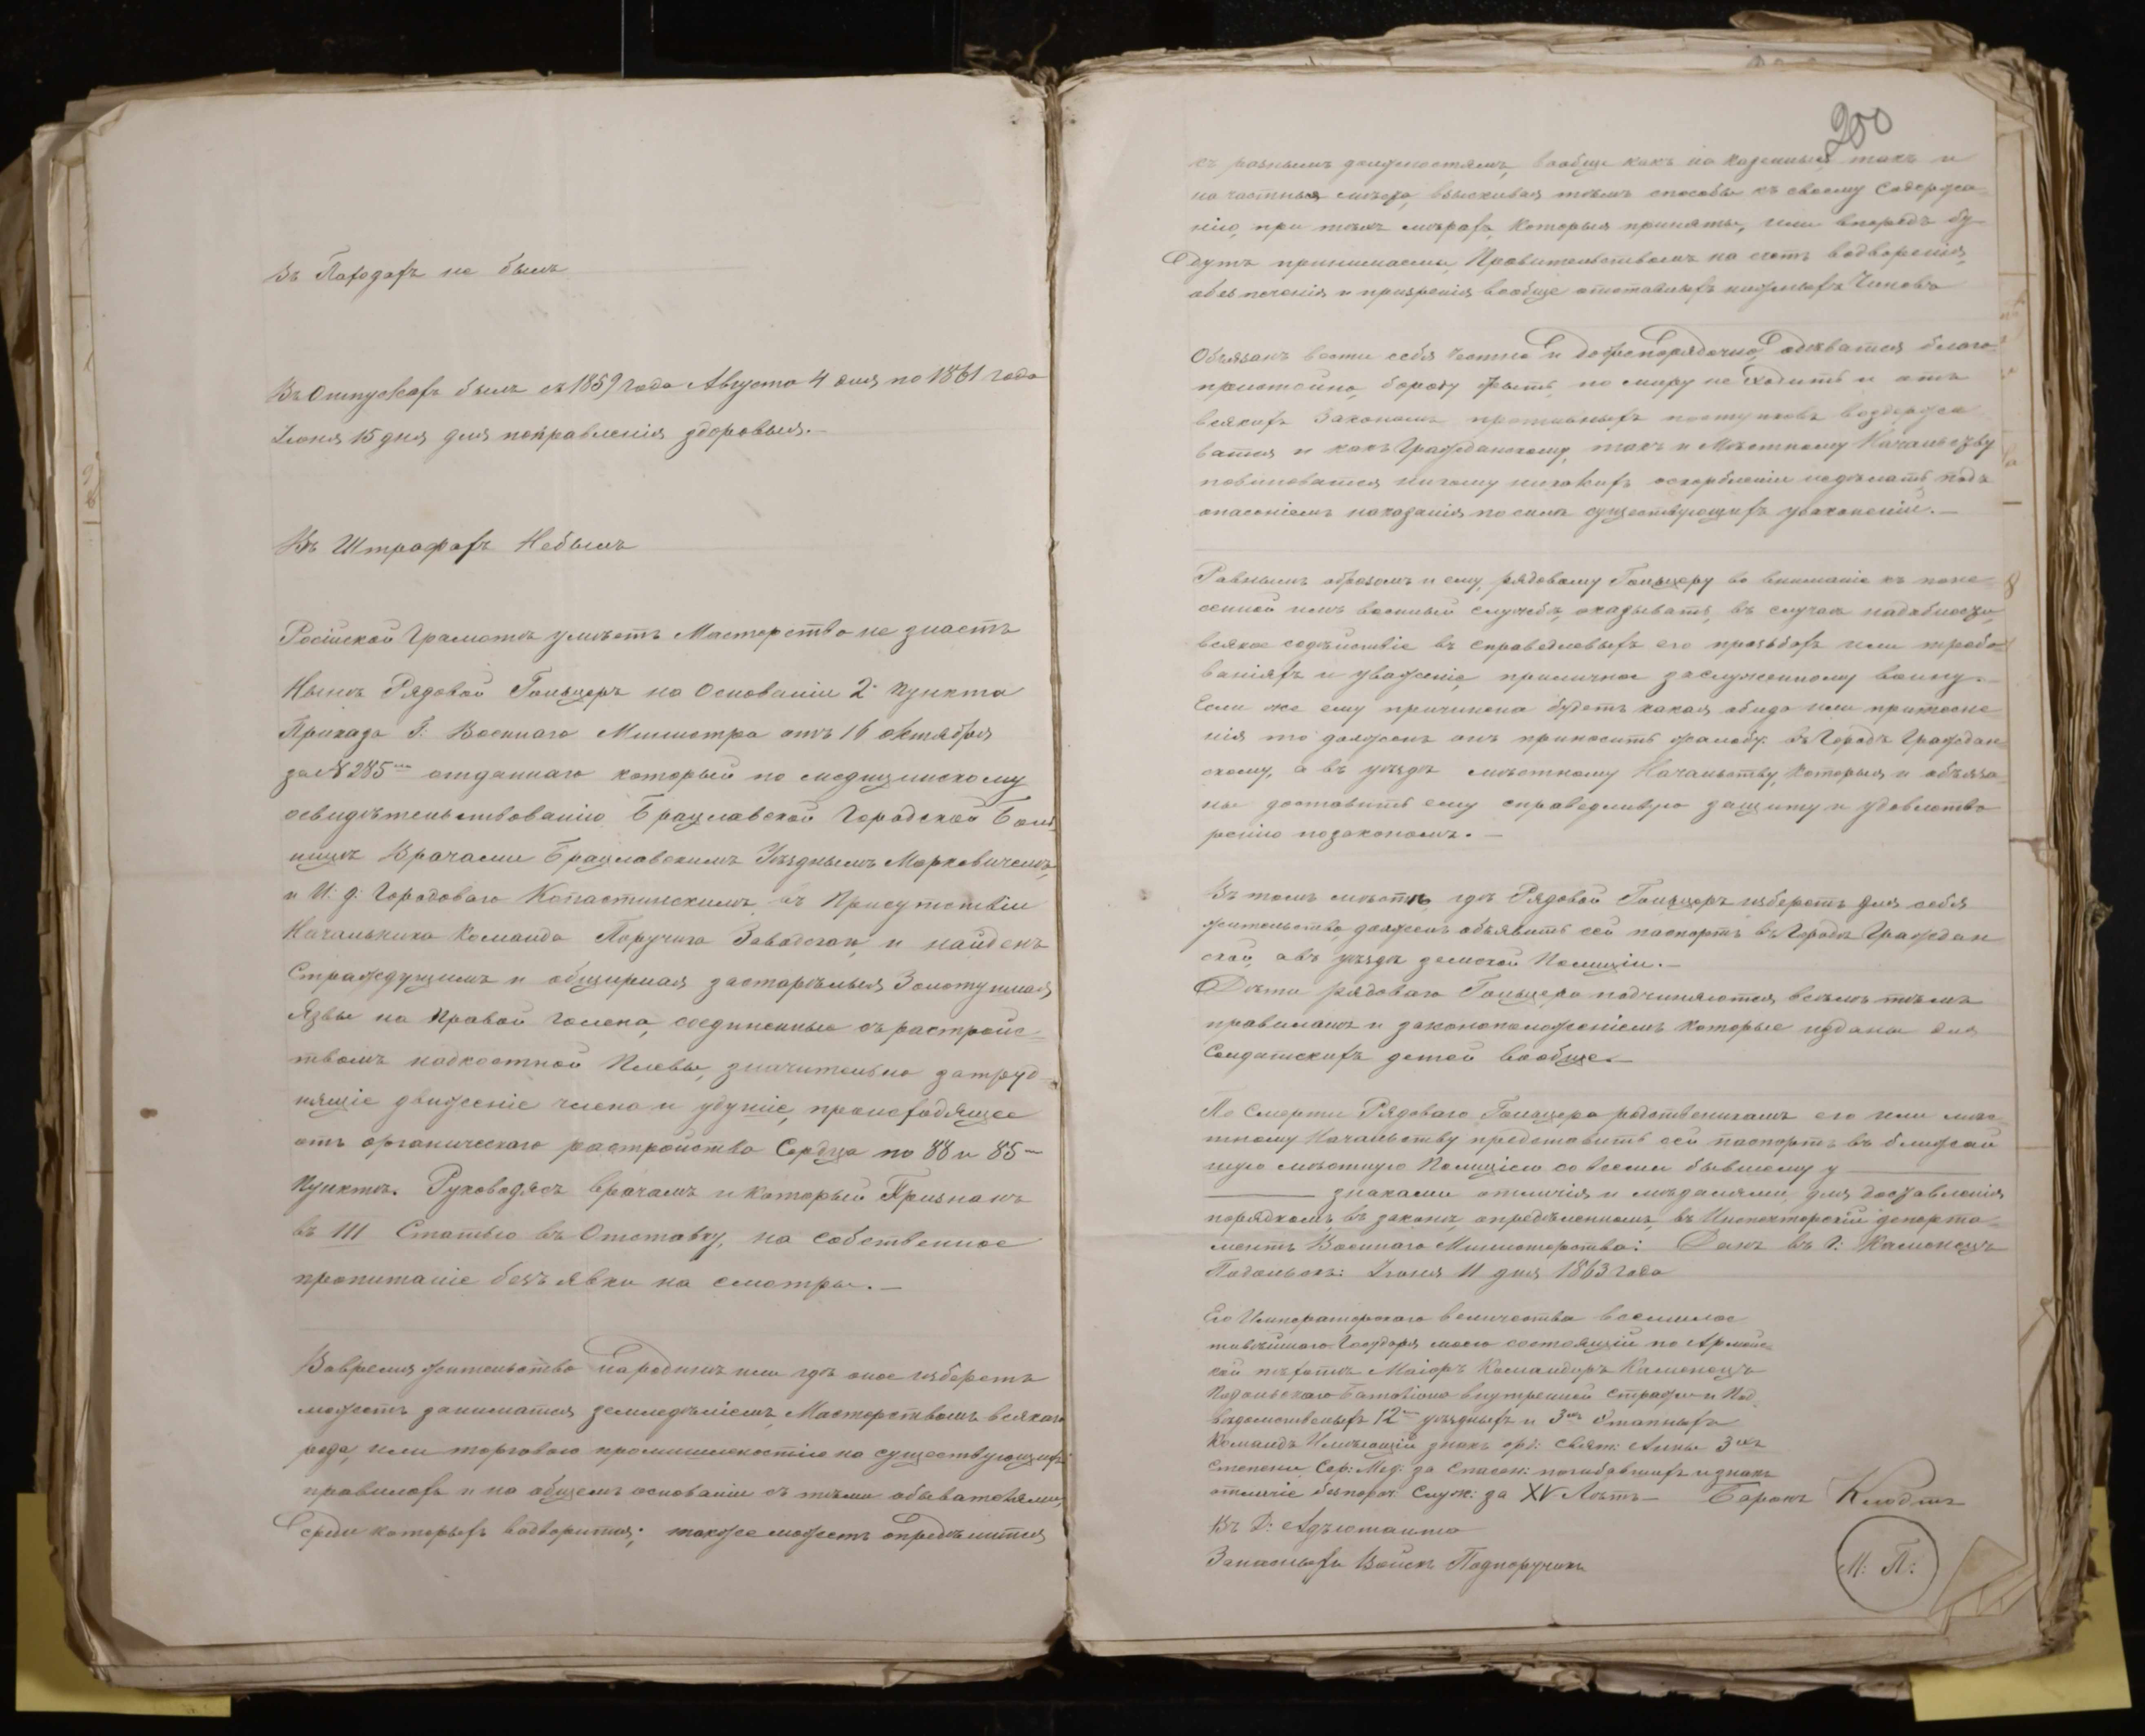 Въ Походахъ не былъ
Въ Отпускахъ былъ съ 1859 года Августа 4 дня по 1861 года
Іюня 15 дня для поправленія здоровья.—
Въ Штрафахъ Небылъ
Російской Грамотѣ умѣетъ Мастерство не знаетъ
Нынѣ Рядовой Гольцеръ на Основаніи 2 пункта
Приказа Г: Военнаго Министра отъ 16 октября
за № 285 отданнаго который по медицинскому
освидѣтельствованію Брацлавской Городской Боль
ницѣ Врачами Брацлавскимъ Уѣзднымъ Марковичемъ
и И: д: Городоваго въ Присутствіи
Начальника Команды Поручика и найденъ
Страждущимъ и обширная застарѣлыя Золотушныя
Язвы на правой голени, соединенныя съ растройс-
твомъ надкостной Плевы, значительно затруд-
нящіе движеніе члена и удушіе, происходящее
отъ органическаго растройства Сердца по 88 и 85
пункта. Руковод. врачамъ и который Признанъ
въ III Статью въ Отставку, на собственное
пропитаніе безъ явки на смотры.—
Вовремя жительства народинѣ или гдѣ оное изберетъ
можетъ заниматся земледѣліемъ, Мастерствомъ всякаго
рода, или торговою промышленостію на существующихъ
правилахъ и на общемъ основаніи съ тѣми обывателями,
среди которыхъ водворится; также можетъ опредѣлится
200
къ разнымъ должностямъ, вообще какъ на казенныя такъ и
на частныя мѣста, взыскивая тѣмъ способы къ своему Содержа-
нію, при тѣхъ мѣрахъ, которыя приняты, или впередъ бу-
дутъ принимаемы Правительствомъ на счетъ водворенія,
обезпеченія и призренія вообще отставныхъ нижнихъ Чиновъ
Обязанъ вести себя Честно и добропорядочно, одѣватся благо-
пристойно, бороду брить, по миру не ходить и отъ
всякихъ Законамъ противныхъ поступковъ воздержи
ватся и какъ Гражданскому, такъ и Мѣстному Начальству
повиноватся никому никакихъ оскорбленіи недѣлать подъ
опасеніемъ наказанія по силѣ существующихъ узаконеніи.—
Равнымъ образомъ и ему, рядовому Гольцеру во вниманіе къ поне-
сенной имъ военный службѣ, оказывать, въ случаѣ надобности,
всякое содѣйствіе въ справедливыхъ его прозьбахъ или требо-
ваніяхъ и уваженіе, приличное заслуженному воину.—
Если же ему причинена будетъ какая обида или притесне-
нія то долженъ онъ приносить жалобу: въ Городѣ Граждан-
скому, а въ уѣздѣ мѣстному Начальству, которыя и обяза-
ны доставить ему справедливую защиту и удовлетво
реніе позаконамъ.—
Въ томъ мѣстѣ, гдѣ Рядовой Гольцеръ изберетъ для себя
жительство, долженъ объявить сей паспортъ въ Городѣ Граждан
ской, авъ уѣздѣ земской Полиціи.—
Дѣти рядоваго Гольцера подчиняются всѣмъ тѣмъ
правиламъ и законоположеніемъ которые изданы для
Солдатскихъ детей вообще.—
По Смерти Рядоваго Гольцера родственикамъ его или мѣс-
тному Начальству представить сей паспортъ въ ближай
шую мѣстную Полицію со всеми бывшему у
знаками отличія и мѣдалями, для доставленія
порядкомъ, въ законѣ опредѣленномъ, въ Инспекторскій департа-
ментъ Военнаго Министерства: Данъ въ Г: Каменецъ
Подольскъ: Іюня 11 дня 1863 года
Его Императорскаго величества всемилос
тивѣйшаго Государя моего состоящій по Армейс-
кой пѣхотѣ Маіоръ Командиръ Каменецъ
Подольскаго Баталіона внутренней Стражи и Под-
вѣдомственыхъ 12 уѣздныхъ и 3хъ этапныхъ
Командъ Имѣющій знакъ орд: Свят: Анны 3й
Степени Сер: Мед: за Спасен: погибавшихъ и знакъ
отличіе безпороч. Служ: за XV Лѣтъ— Баронъ Клодтъ
Въ Д: Адъютанта
Запасныхъ Войскъ Подпоручикъ
М: П: